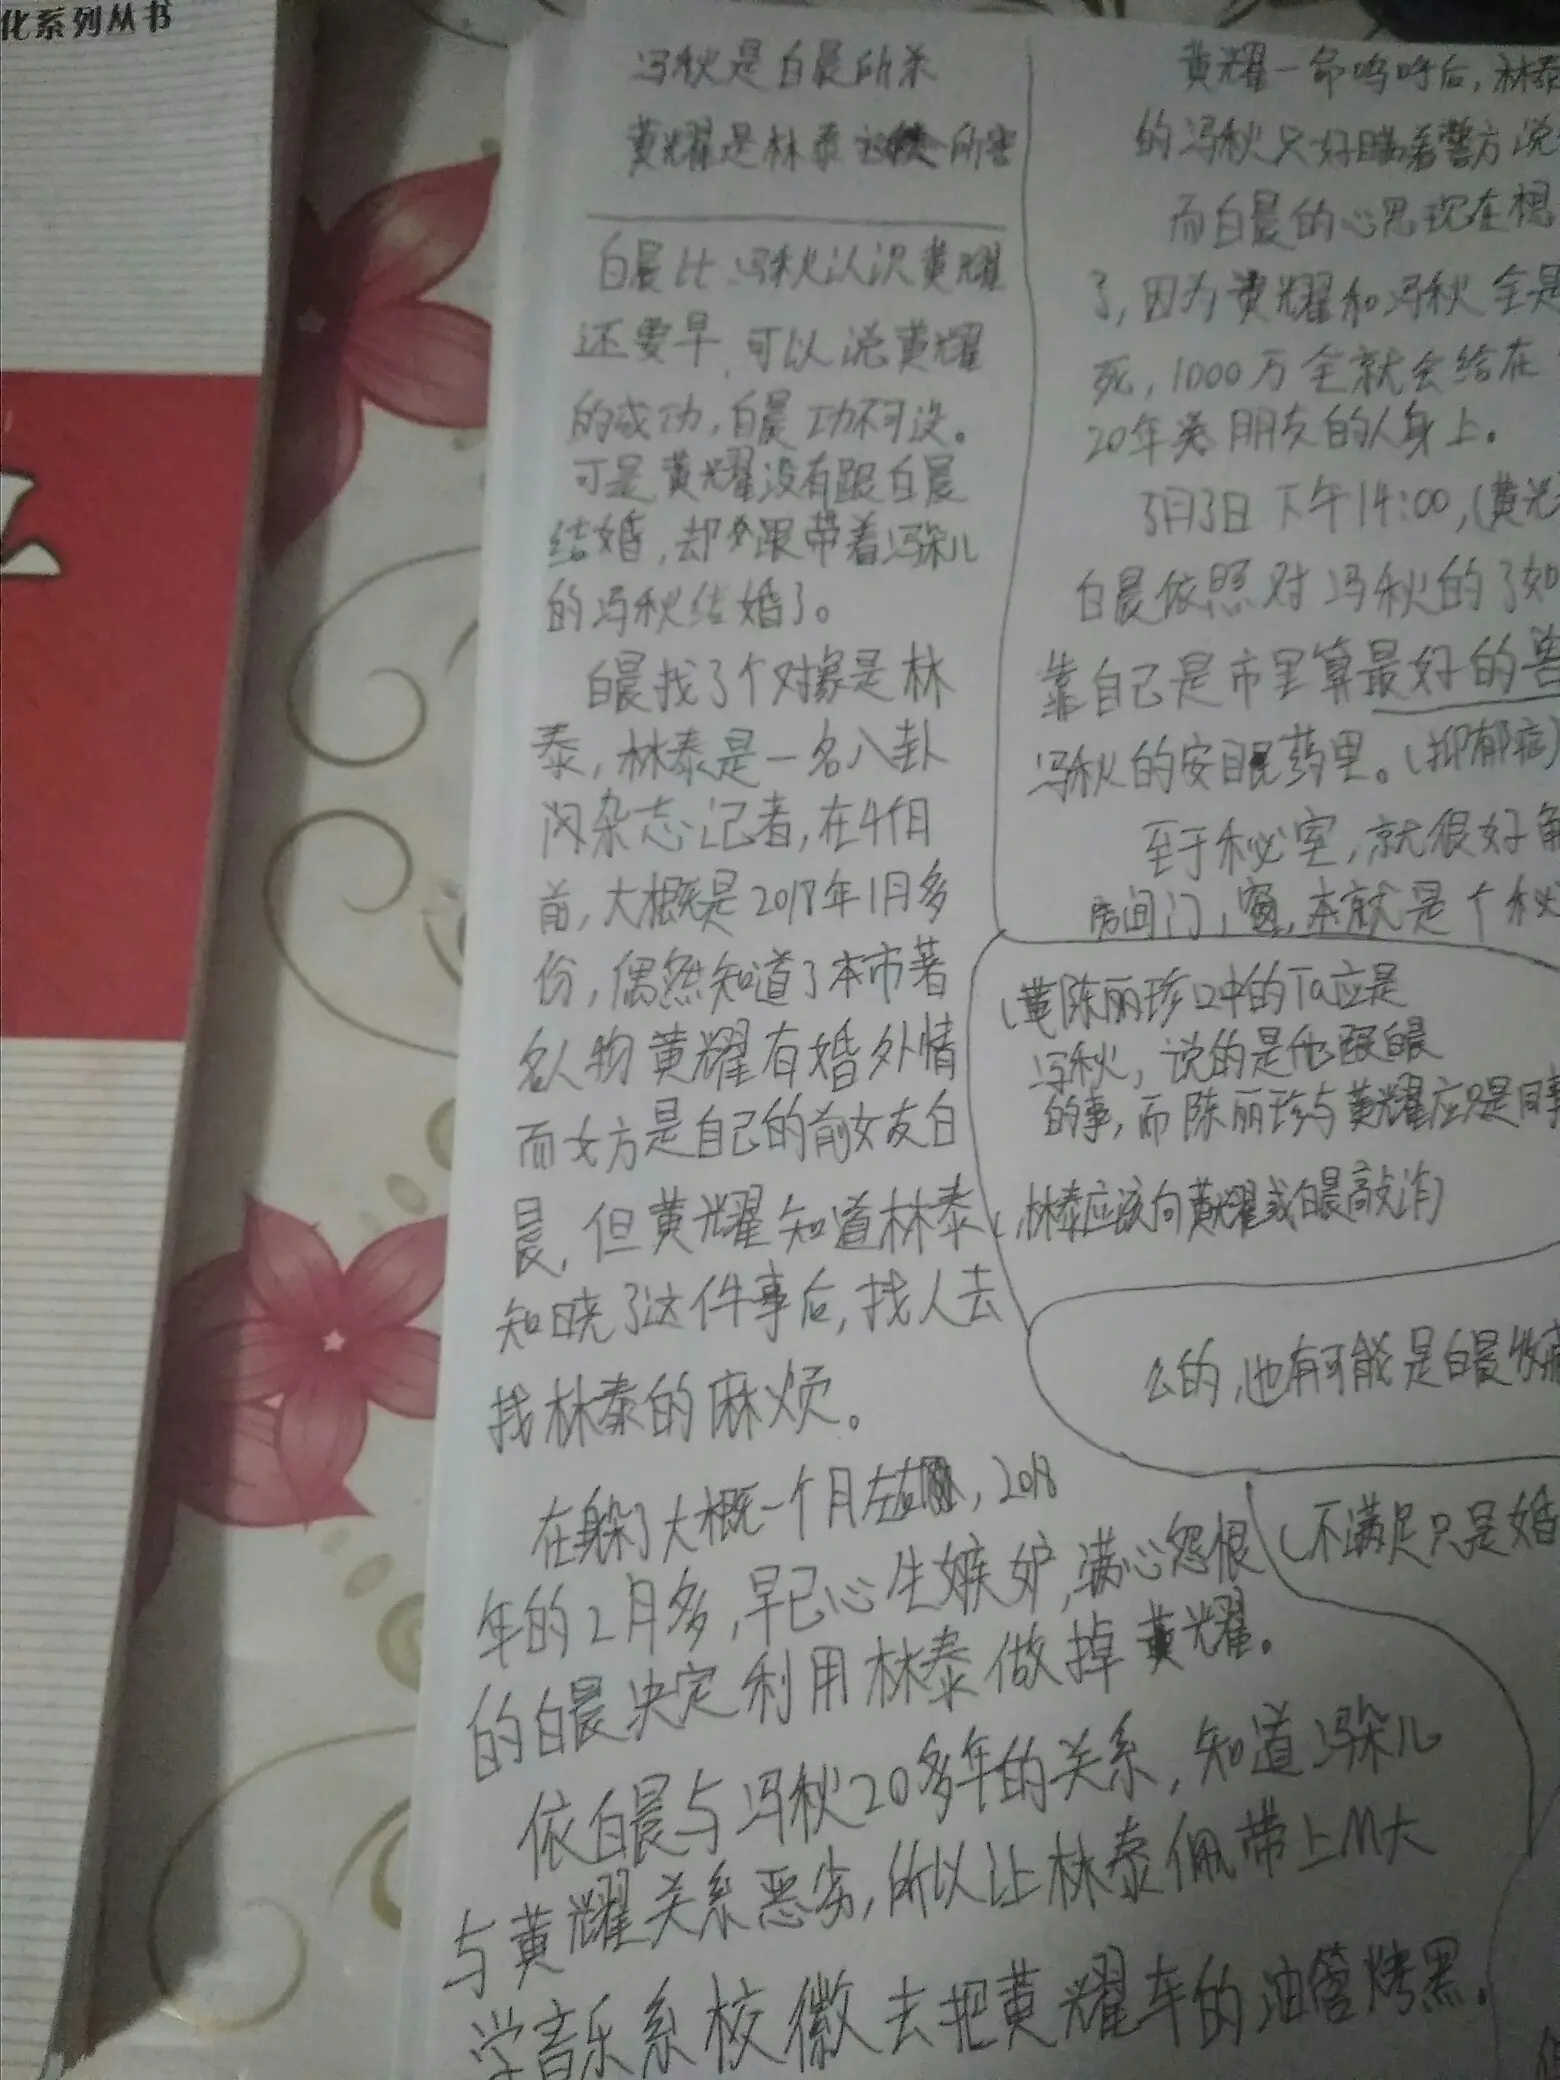 化系列丛书
冯秋是白晨所杀
黄耀是林泰所害
白晨比冯秋认识黄耀
还要早,可以说黄耀
的成功,白晨功不可没。
可是黄耀没有跟白晨
结婚,却跟带着冯朵儿
的冯秋结婚了。
白晨找了个对象是林
泰,林泰是一名八卦
杂志记者,在4个月
前,大概是2018年1月多
份,偶然知道了本市著
名人物黄耀有婚外情
而女方是自己的前女友白
晨,但黄耀知道林泰
知晓了这件事后,找人去
找林泰的麻烦。
在躲了大概一个月左右,2018
年的2月多,早已心生嫉妒,满心怨恨
的白晨决定利用林泰做掉黄耀。
依白晨与冯秋20多年的关系,知道冯朵儿
与黄耀关系恶劣,所以让林泰佩带上M大
学音乐系校徽去把黄耀车的油管烤黑.
黄耀一命呜呼后,林泰
的冯秋只好瞒着警方说
而白晨的心思现在想
了,因为黄耀和冯秋全是
死,1000万全就会给在
20年类朋友的人身上.
3月3日下午14:00,(黄
白晨依照对冯秋的了如
靠自己是市里算最好的
冯秋的安眠药里。(抑郁症)
至于秘室,就很好
房间门,窗,本就是个秘
(陈丽珍口中的Ta应是
冯秋,说的是他跟白晨
的事,而陈丽珍与黄耀应只是同事
林泰应该向黄耀或白晨敲诈)
么的,也有可能是白晨
(不满足只是婚